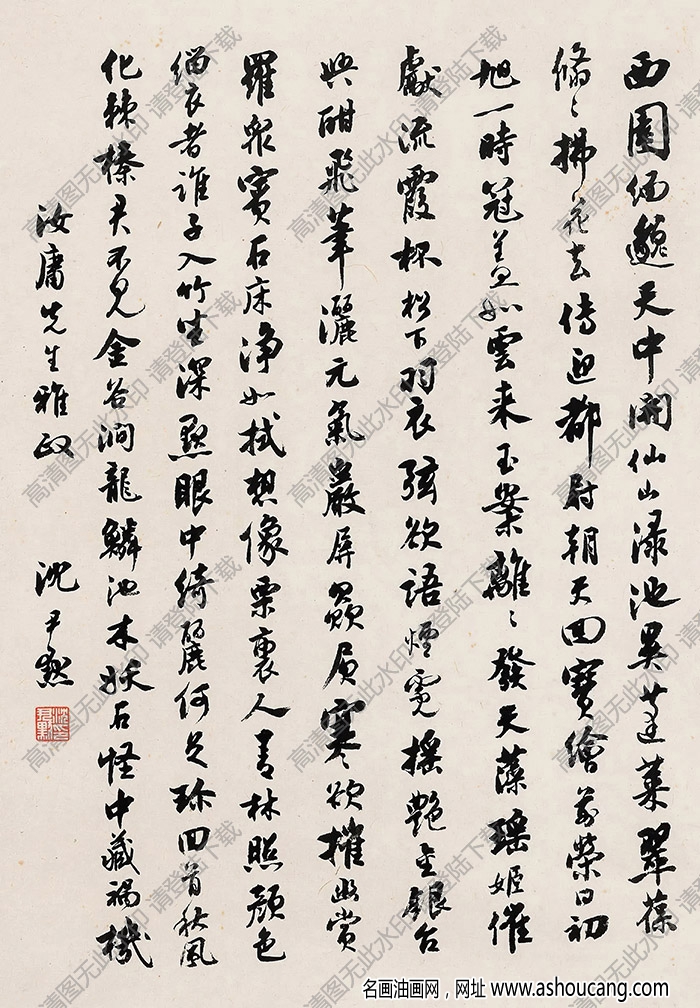 西園緬邈天中開仙山淥池異蓬萊翠葆
翛〻拂花去傳迎都尉朝天回寶繪前榮日初
旭一時冠蓋如雲来玉案離〻發天藻瑤姬催
獻流霞杯松下羽衣弦欲語煙霓搖艷金銀台
興酣飛筆灑元氣巖屏贔屓寒欲摧幽賞
羅眾賓石床净如拭想像栗裏人青林照顏色
緇衣者誰子入竹坐深默眼中綺麗何足珍回首秋風
化棘榛君不見金谷澗龍鱗池木妖石怪中藏禍機
汝庸先生雅政
沈尹默
高清图无此水印 请登陆下载
名画油画网，网址 www.ashoucang.com